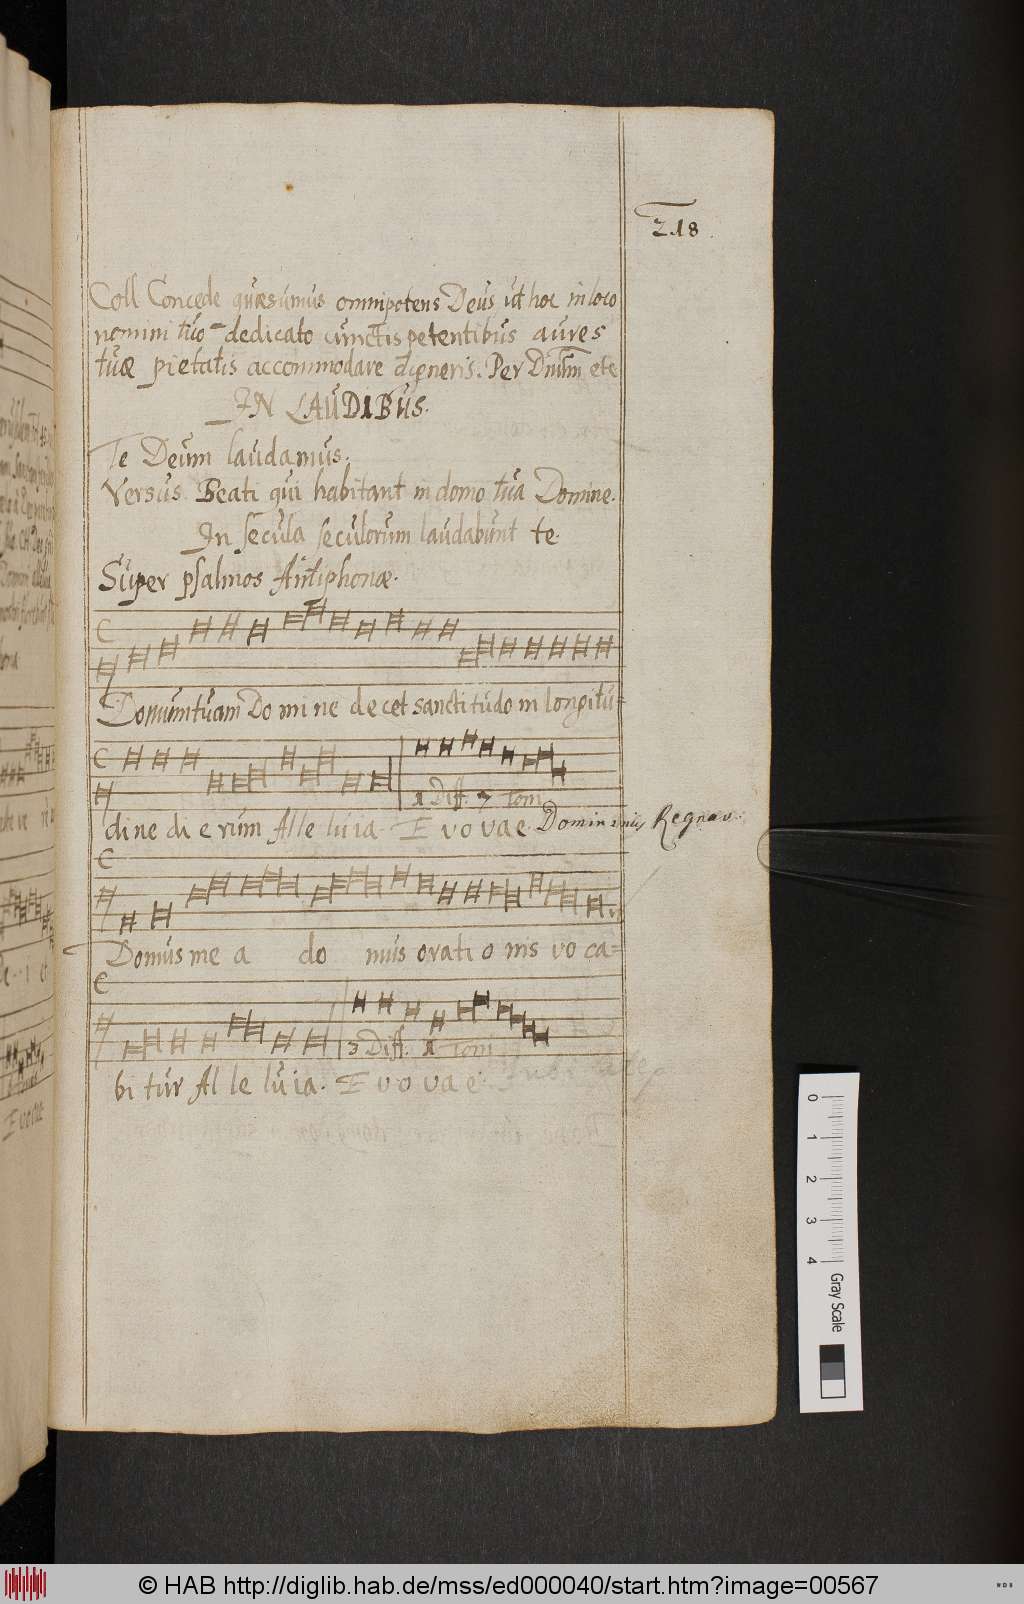 218
Coll Concede quæsumus omnipotens Deus ut hoc in loco
nomini tuo dedicato cunctis petentibus aures
tuæ pietatis accommodare digneris. Per Dnum etc
IN LAUDIBUS.
Te Deum laudamus.
Versus. Beati qui habitant in domo tua Domine.
In secula seculorum laudabunt te.
Super psalmos Antiphonæ.
Domum tuam Do mi ne decet sanctitudo in longitu=
1 Diff. 7 Tom
di ne di e rum Alle luia. E vo vae. Regnav.
Domus me a do mus orati o nis vo ca=
3 Diff. 1 Tom
bi tur Al le luia. E vo vae. Jubilate
0 1 2 3 4 Gray Scale
© HAB http://diglib.hab.de/mss/ed000040/start.htm?image=00567